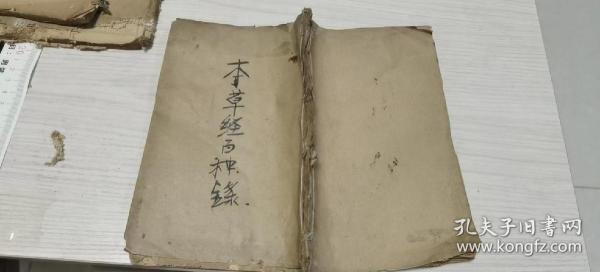 本草经百种錄
孔夫子旧书网
www.kongfz.com